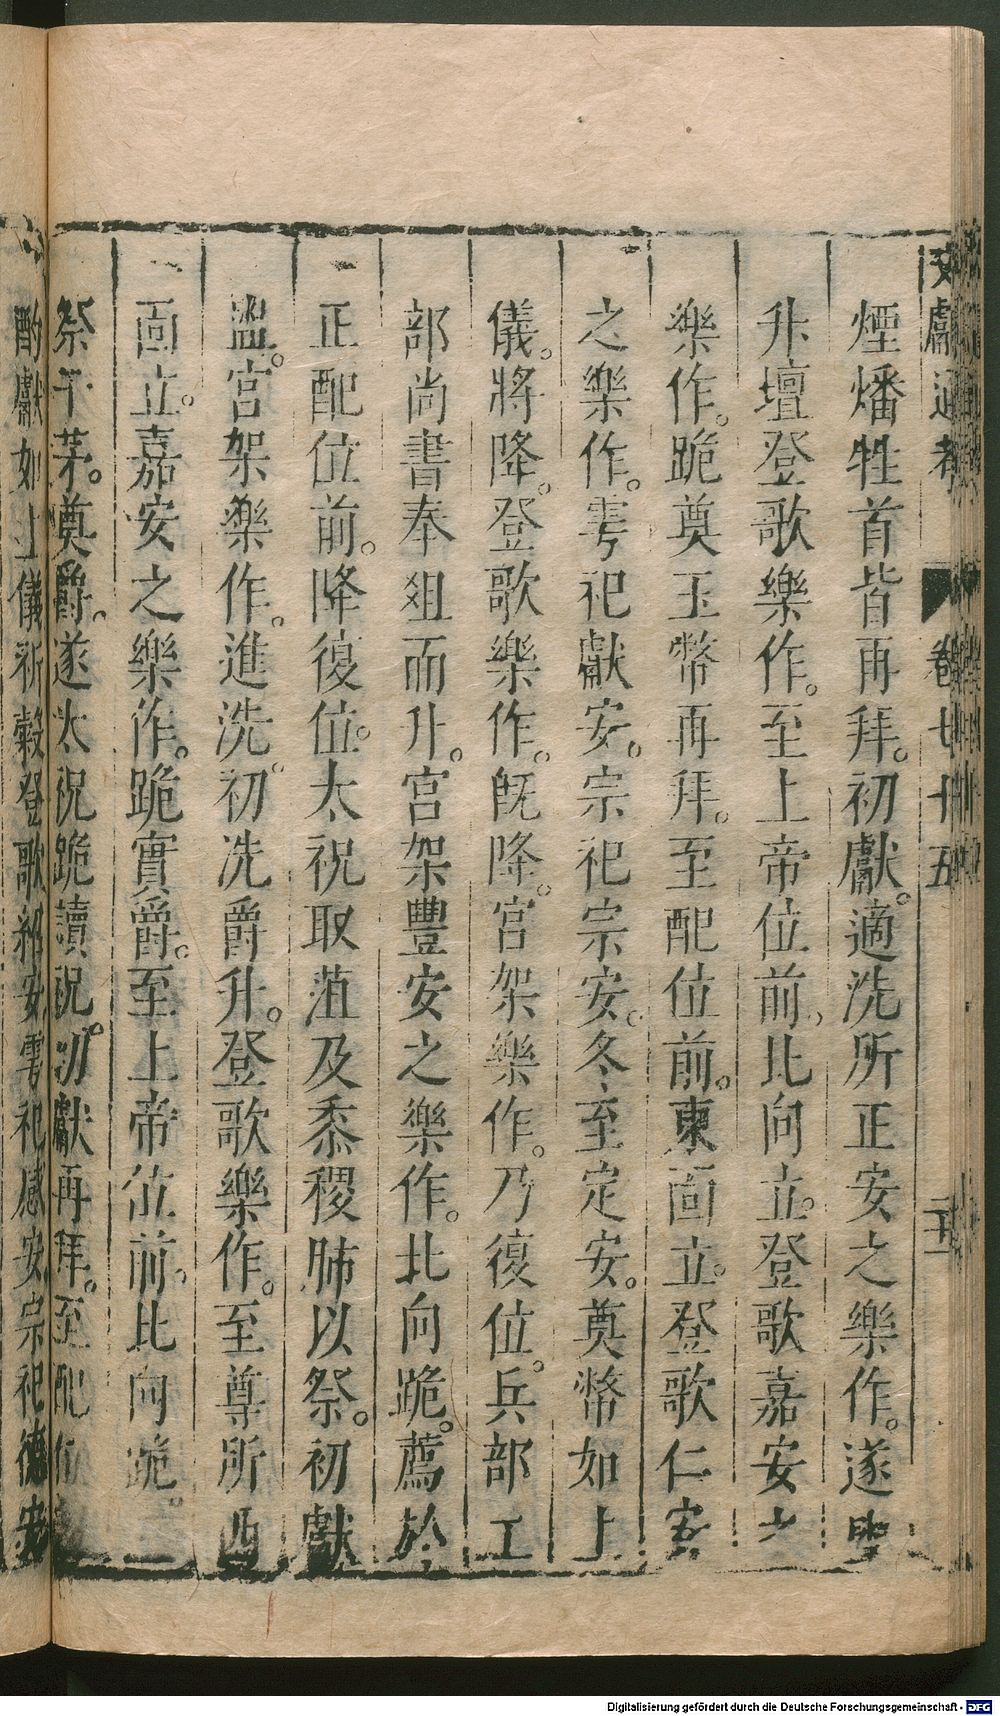 文獻通考 卷七十五
煙燔牲首皆再拜。初獻。適洗所正安之樂作。遂
升壇登歌樂作。至上帝位前。北向立。登歌嘉安之
樂作。跪奠玉幣再拜。至配位前。東面立。登歌仁安
之樂作。雩祀獻安。宗祀宗安。冬至定安。奠幣如上
儀。將降。登歌樂作。旣降。宮架樂作。乃復位。兵部工
部尚書奉俎而升。宮架豐安之樂作。北向跪。薦於
正配位前。降復位。太祝取菹及黍稷肺以祭。初獻
盥。宮架樂作。進洗。初洗爵升。登歌樂作。至尊所酉
面立。嘉安之樂作。跪實爵。至上帝位前。北向跪。
祭于茅。奠爵。遂太祝跪讀祝。初獻再拜。至配位
酌獻如上儀祈穀登歌紹安雩祀感安宗祀德安
Digitalisierung gefördert durch die Deutsche Forschungsgemeinschaft - DFG